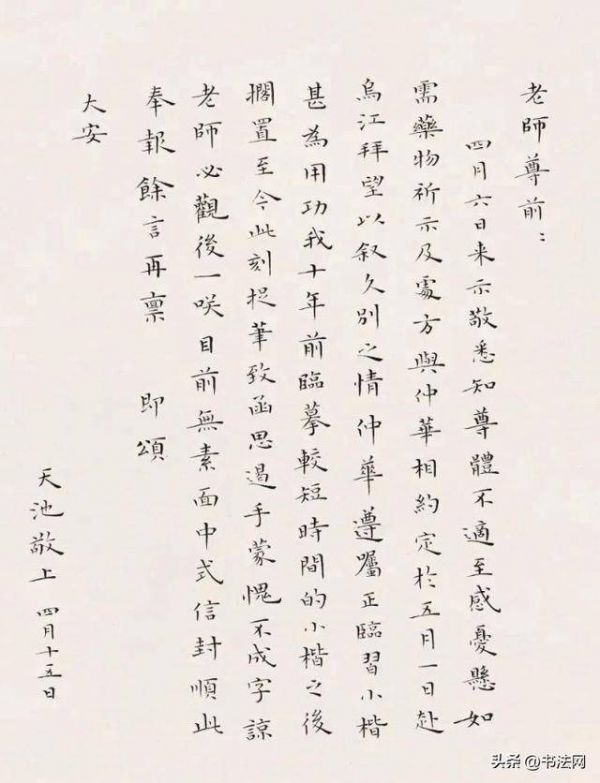 老師尊前：
四月六日来示敬悉知尊體不適至感憂懸如
需藥物祈示及處方與仲華相約定於五月一日赴
烏江拜望以叙久別之情仲華遵囑正臨習小楷
甚為用功我十年前臨摹較短時間的小楷之後
擱置至今此刻捉筆致函思過手蒙愧不成字諒
老師必觀後一咲目前無素面中式信封順此
奉報餘言再禀　即頌
大安
天池敬上　四月十五日
头条@书法网